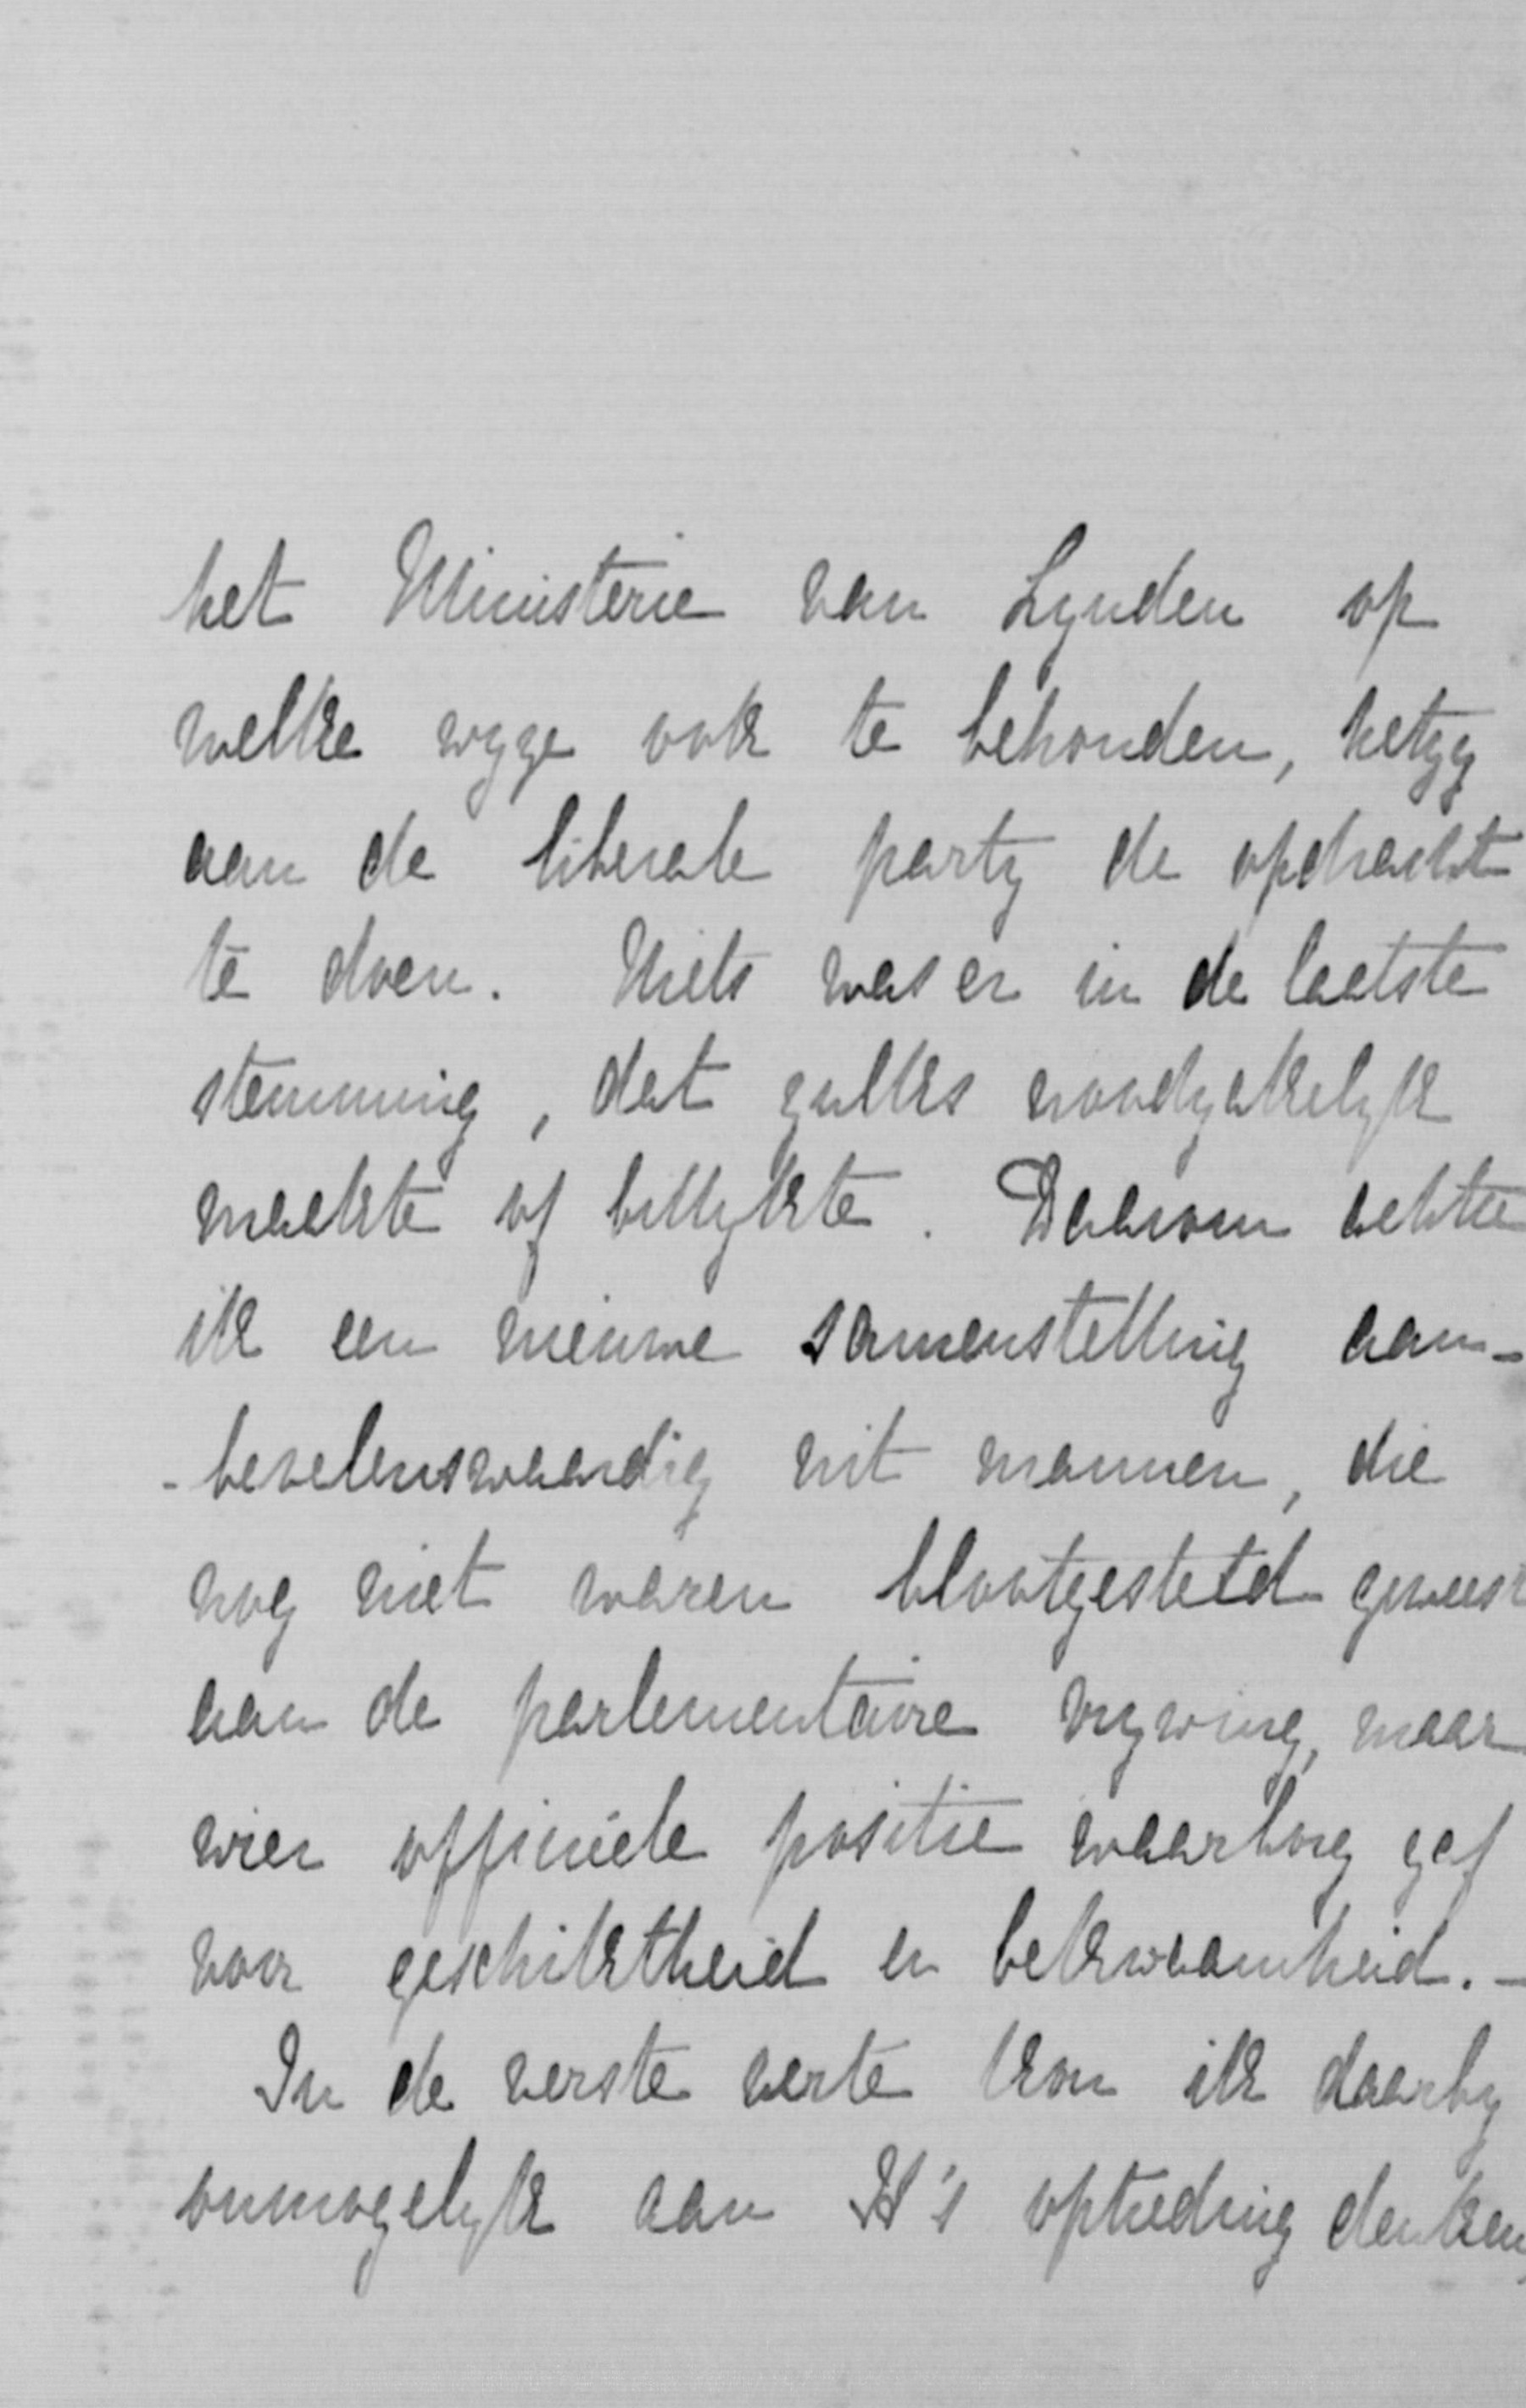 het Ministerie van Lynden op
welke wyze ook te behouden, hetzy
aan de liberale party de opdracht
te doen. Niets was er in de laatste
stemming, dat zulks noodzakelyk
maakte of billykte. Daarom achtte
ik een nieuwe samenstelling aan-
-bevelenswaardig uit mannen, die
nog niet waren blootgesteld geweest
aan de parlementaire wryving, maar
wier officiëele positie waarborg gaf
voor geschiktheid en bekwaamheid. -
In de verste verte kon ik daarby
onmogelyk aan H's optreding denken,